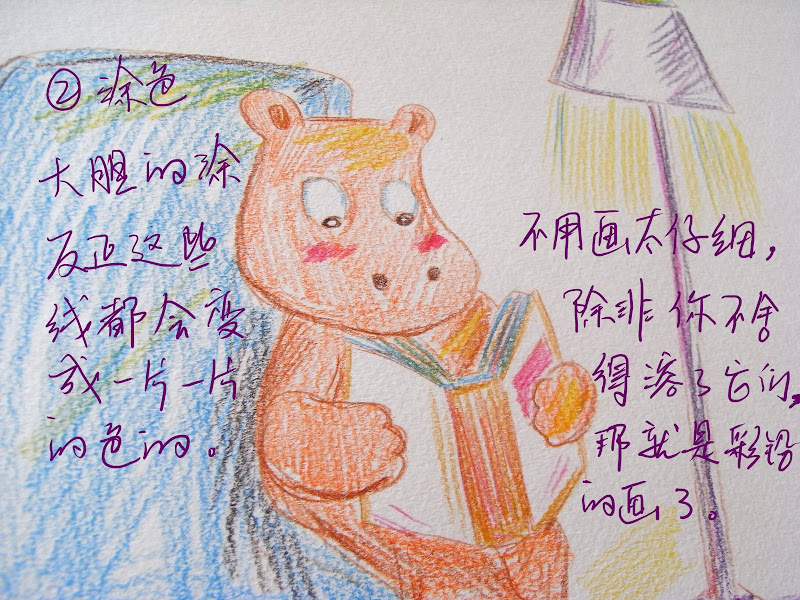 ② 涂色
大胆的涂
反正这些
线都会变
成一片一片
的色的。
不用画太仔细，
除非你不舍
得溶了它们，
那就是彩铅
的画了。